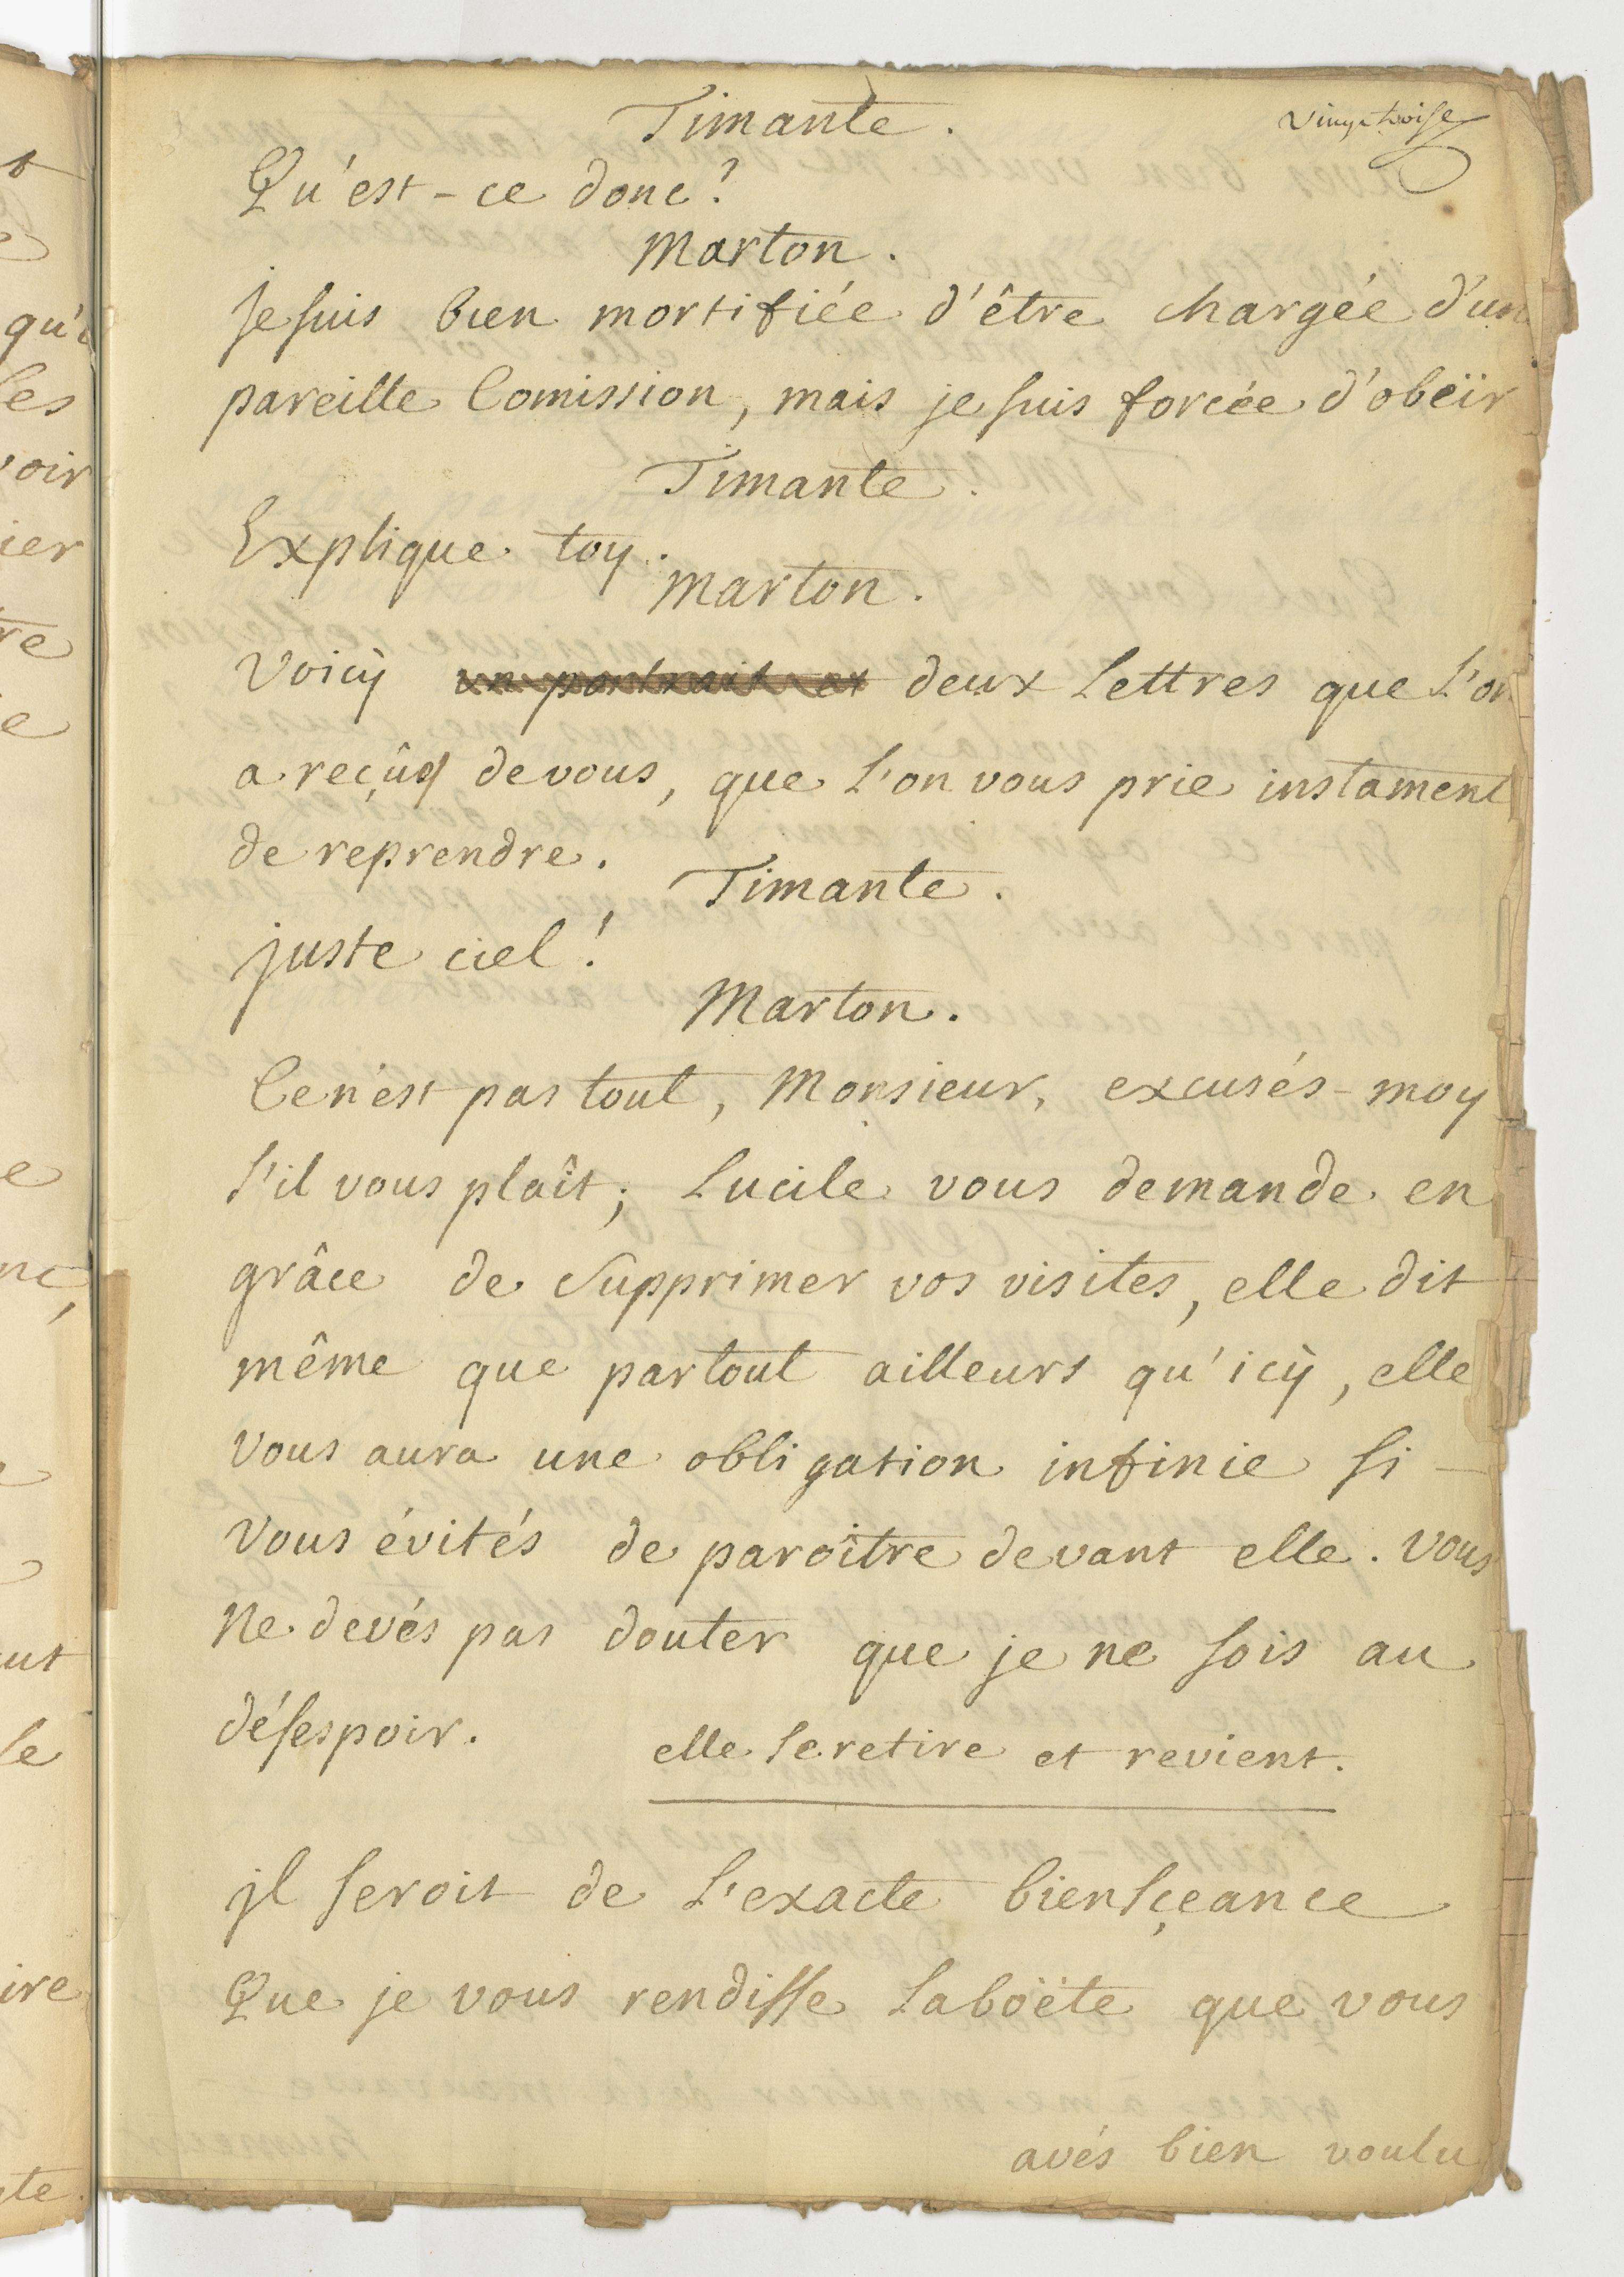 vingt troise
Timante.
Qu'est-ce donc?
Marton.
je suis bien mortifiée d'être chargée d'une
pareille Comission, mais je suis forcée d'obëir
Timante.
Explique toy.
Marton.
Voicÿ un portrait et deux Lettres que L'on
a reçûes de vous, que L'on vous prie instament
de reprendre.
Timante.
juste ciel!
Marton.
Ce n'est pas tout, Monsieur, excusés-moy
s'il vous plaît; Lucile vous demande en
grâce de supprimer vos visites, elle dit
même que partout ailleurs qu'icÿ, elle
vous aura une obligation infinie si
vous évités de paroître devant elle. vous
Ne devés pas douter que je ne sois au
désespoir.
elle se retire et revient.
jl seroit de L'exacte biensçeance
Que je vous rendisse La boëte que vous
avés bien voulu